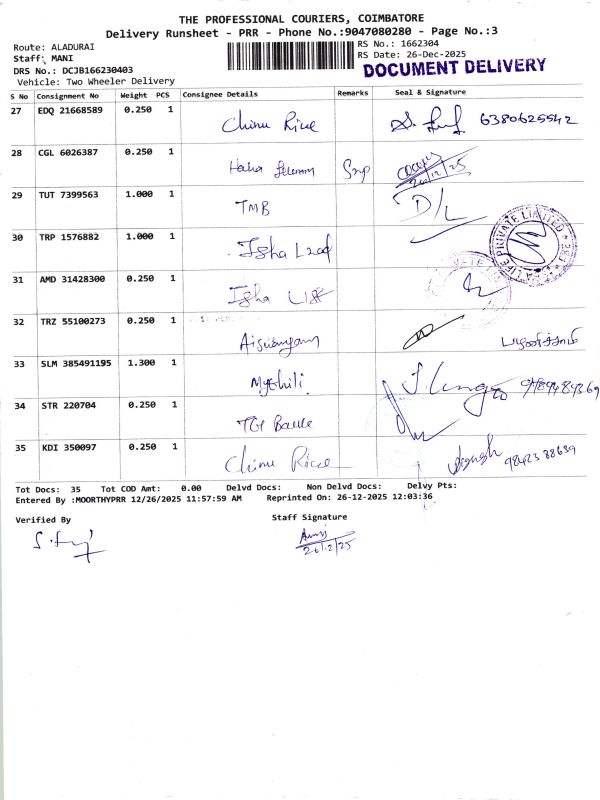 THE PROFESSIONAL COURIERS, COIMBATORE
Delivery Runsheet - PRR - Phone No.:9047080280 - Page No.:3
Route: ALADURAI
Staff: MANI
DRS No.: DCJB166230403
Vehicle: Two Wheeler Delivery
RS No.: 1662304
RS Date: 26-Dec-2025
DOCUMENT DELIVERY
S No Consignment No Weight PCS Consignee Details Remarks Seal & Signature
27 EDQ 21668589 0.250 1 Chinu Rice 6380625542
28 CGL 6026387 0.250 1
29 TUT 7399563 1.000 1 TMB D/L
30 TRP 1576882 1.000 1 Isha
PRIVATE LIMITED
31 AMD 31428300 0.250 1 Isha
32 TRZ 55100273 0.250 1
33 SLM 385491195 1.300 1 Mythili
34 STR 220704 0.250 1
35 KDI 350097 0.250 1 Chinu Rice 9842388639
Tot Docs: 35 Tot COD Amt: 0.00 Delvd Docs: Non Delvd Docs: Delvy Pts:
Entered By :MOORTHYPRR 12/26/2025 11:57:59 AM Reprinted On: 26-12-2025 12:03:36
Verified By
Staff Signature
26/12/25